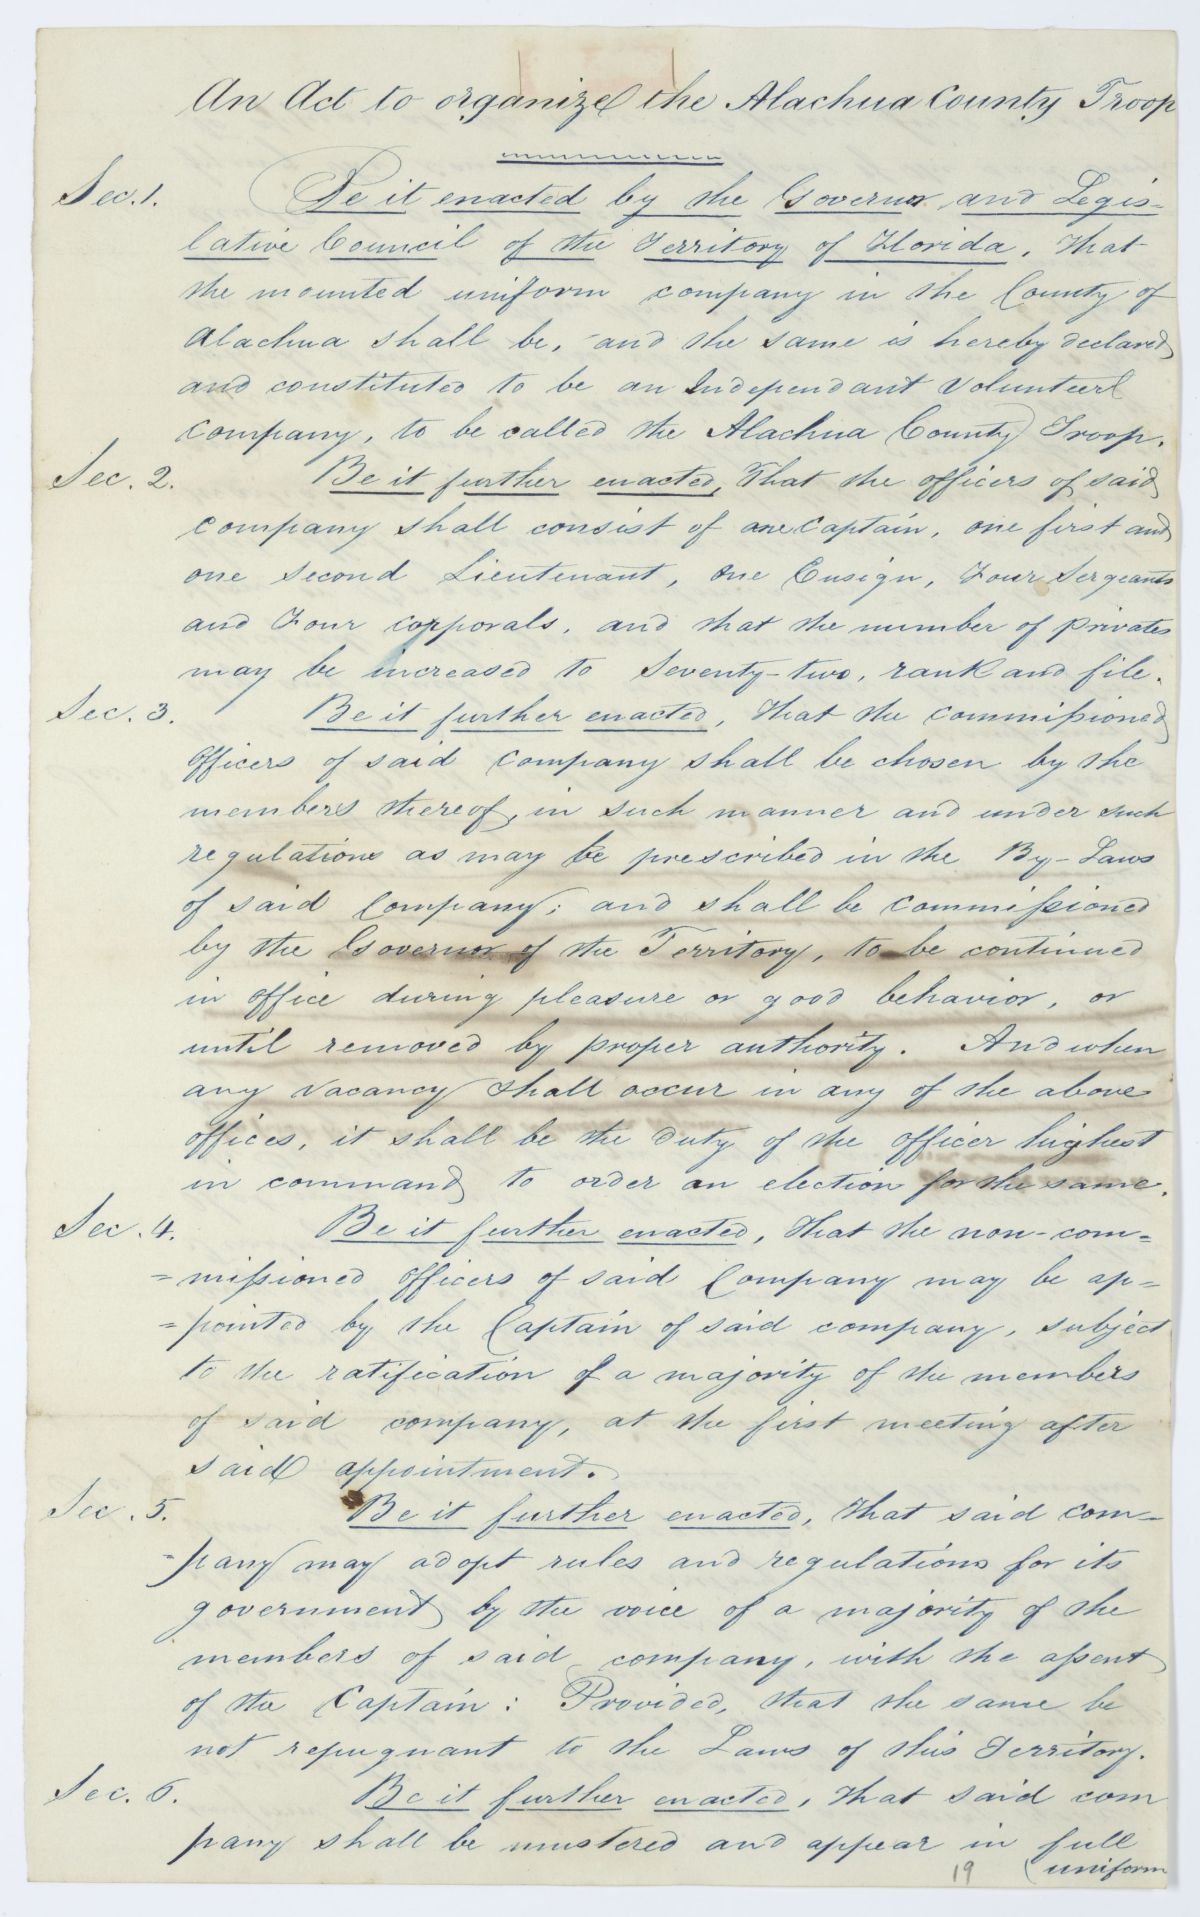 An Act to organize the Alachua County Troop
Sec. 1. Be it enacted by the Governor and Legis-
lative Council of the Territory of Florida, That
the mounted uniform company in the County of
Alachua shall be, and the same is hereby declared
and constituted to be an Independant Volunteer
company, to be called the Alachua County Troop.
Sec. 2. Be it further enacted, That the officers of said
company shall consist of one Captain, one first and
one second Lieutenant, one Ensign, Four Sergeants
and Four corporals, and that the number of privates
may be increased to Seventy-two, rank and file.
Sec. 3. Be it further enacted, That the commissioned
officers of said company shall be chosen by the
members thereof, in such manner and under such
regulations as may be prescribed in the By-Laws
of said Company; and shall be commissioned
by the Governor of the Territory, to be continued
in office during pleasure or good behavior, or
until removed by proper authority. And when
any vacancy shall occur in any of the above
offices, it shall be the duty of the officer highest
in command to order an election for the same.
Sec. 4. Be it further enacted, That the non-com=
=missioned officers of said Company may be ap=
=pointed by the Captain of said company, subject
to the ratification of a majority of the members
of said company, at the first meeting after
said appointment.
Sec. 5. Be it further enacted, That said com=
=pany may adopt rules and regulations for its
government by the voice of a majority of the
members of said company, with the assent
of the Captain: Provided, that the same be
not repugnant to the Laws of this Territory.
Sec. 6. Be it further enacted, That said com
pany shall be mustered and appear in full
19 (uniform